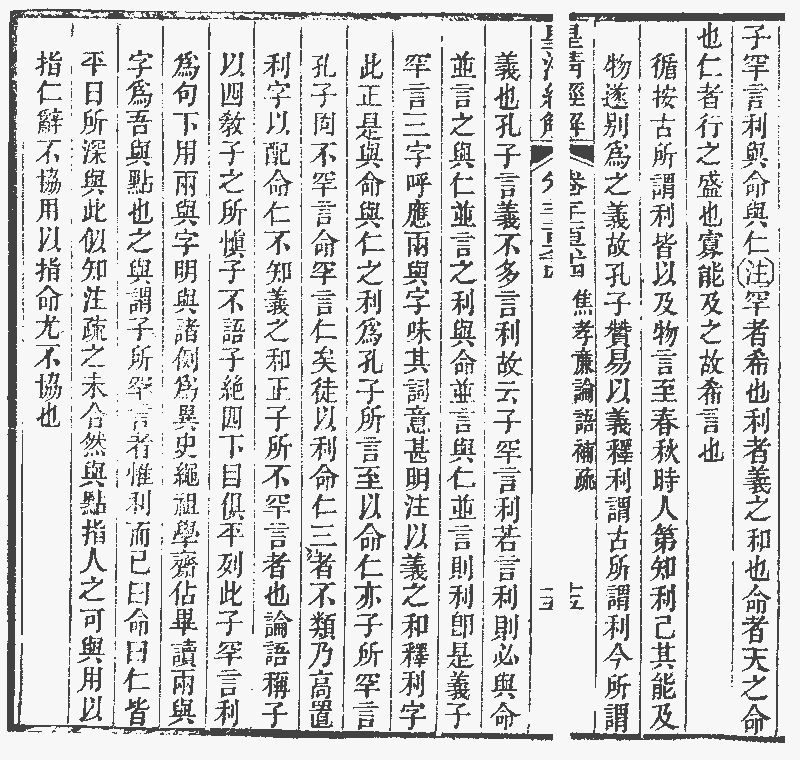 子罕言利與命與仁注罕者希也利者義之和也命者天之命
也仁者行之盛也寡能及之故希言也
循按古所謂利皆以及物言至春秋時人第知利己其能及
物遂別爲之義故孔子贊易以義釋利謂古所謂利今所謂
皇清經解 卷三百六十四 焦孝廉論語補疏 十五
義也孔子言義不多言利故云子罕言利若言利則必與命
並言之與仁並言之利與命並言與仁並言則利即是義子
罕言三字呼應兩與字味其詞意甚明注以義之和釋利字
此正是與命與仁之利爲孔子所言至以命仁亦子所罕言
孔子固不罕言命罕言仁矣徒以利命仁三者不類乃高置
利字以配命仁不知義之和正子所不罕言者也論語稱子
以四敎子之所愼子不語子絶四下目俱平列此子罕言利
爲句下用兩與字明與諸例爲異史繩祖學齋佔畢讀兩與
字爲吾與點也之與謂子所罕言者惟利而已曰命曰仁皆
平日所深與此似知注疏之未合然與點指人之可與用以
指仁辭不協用以指命尤不協也